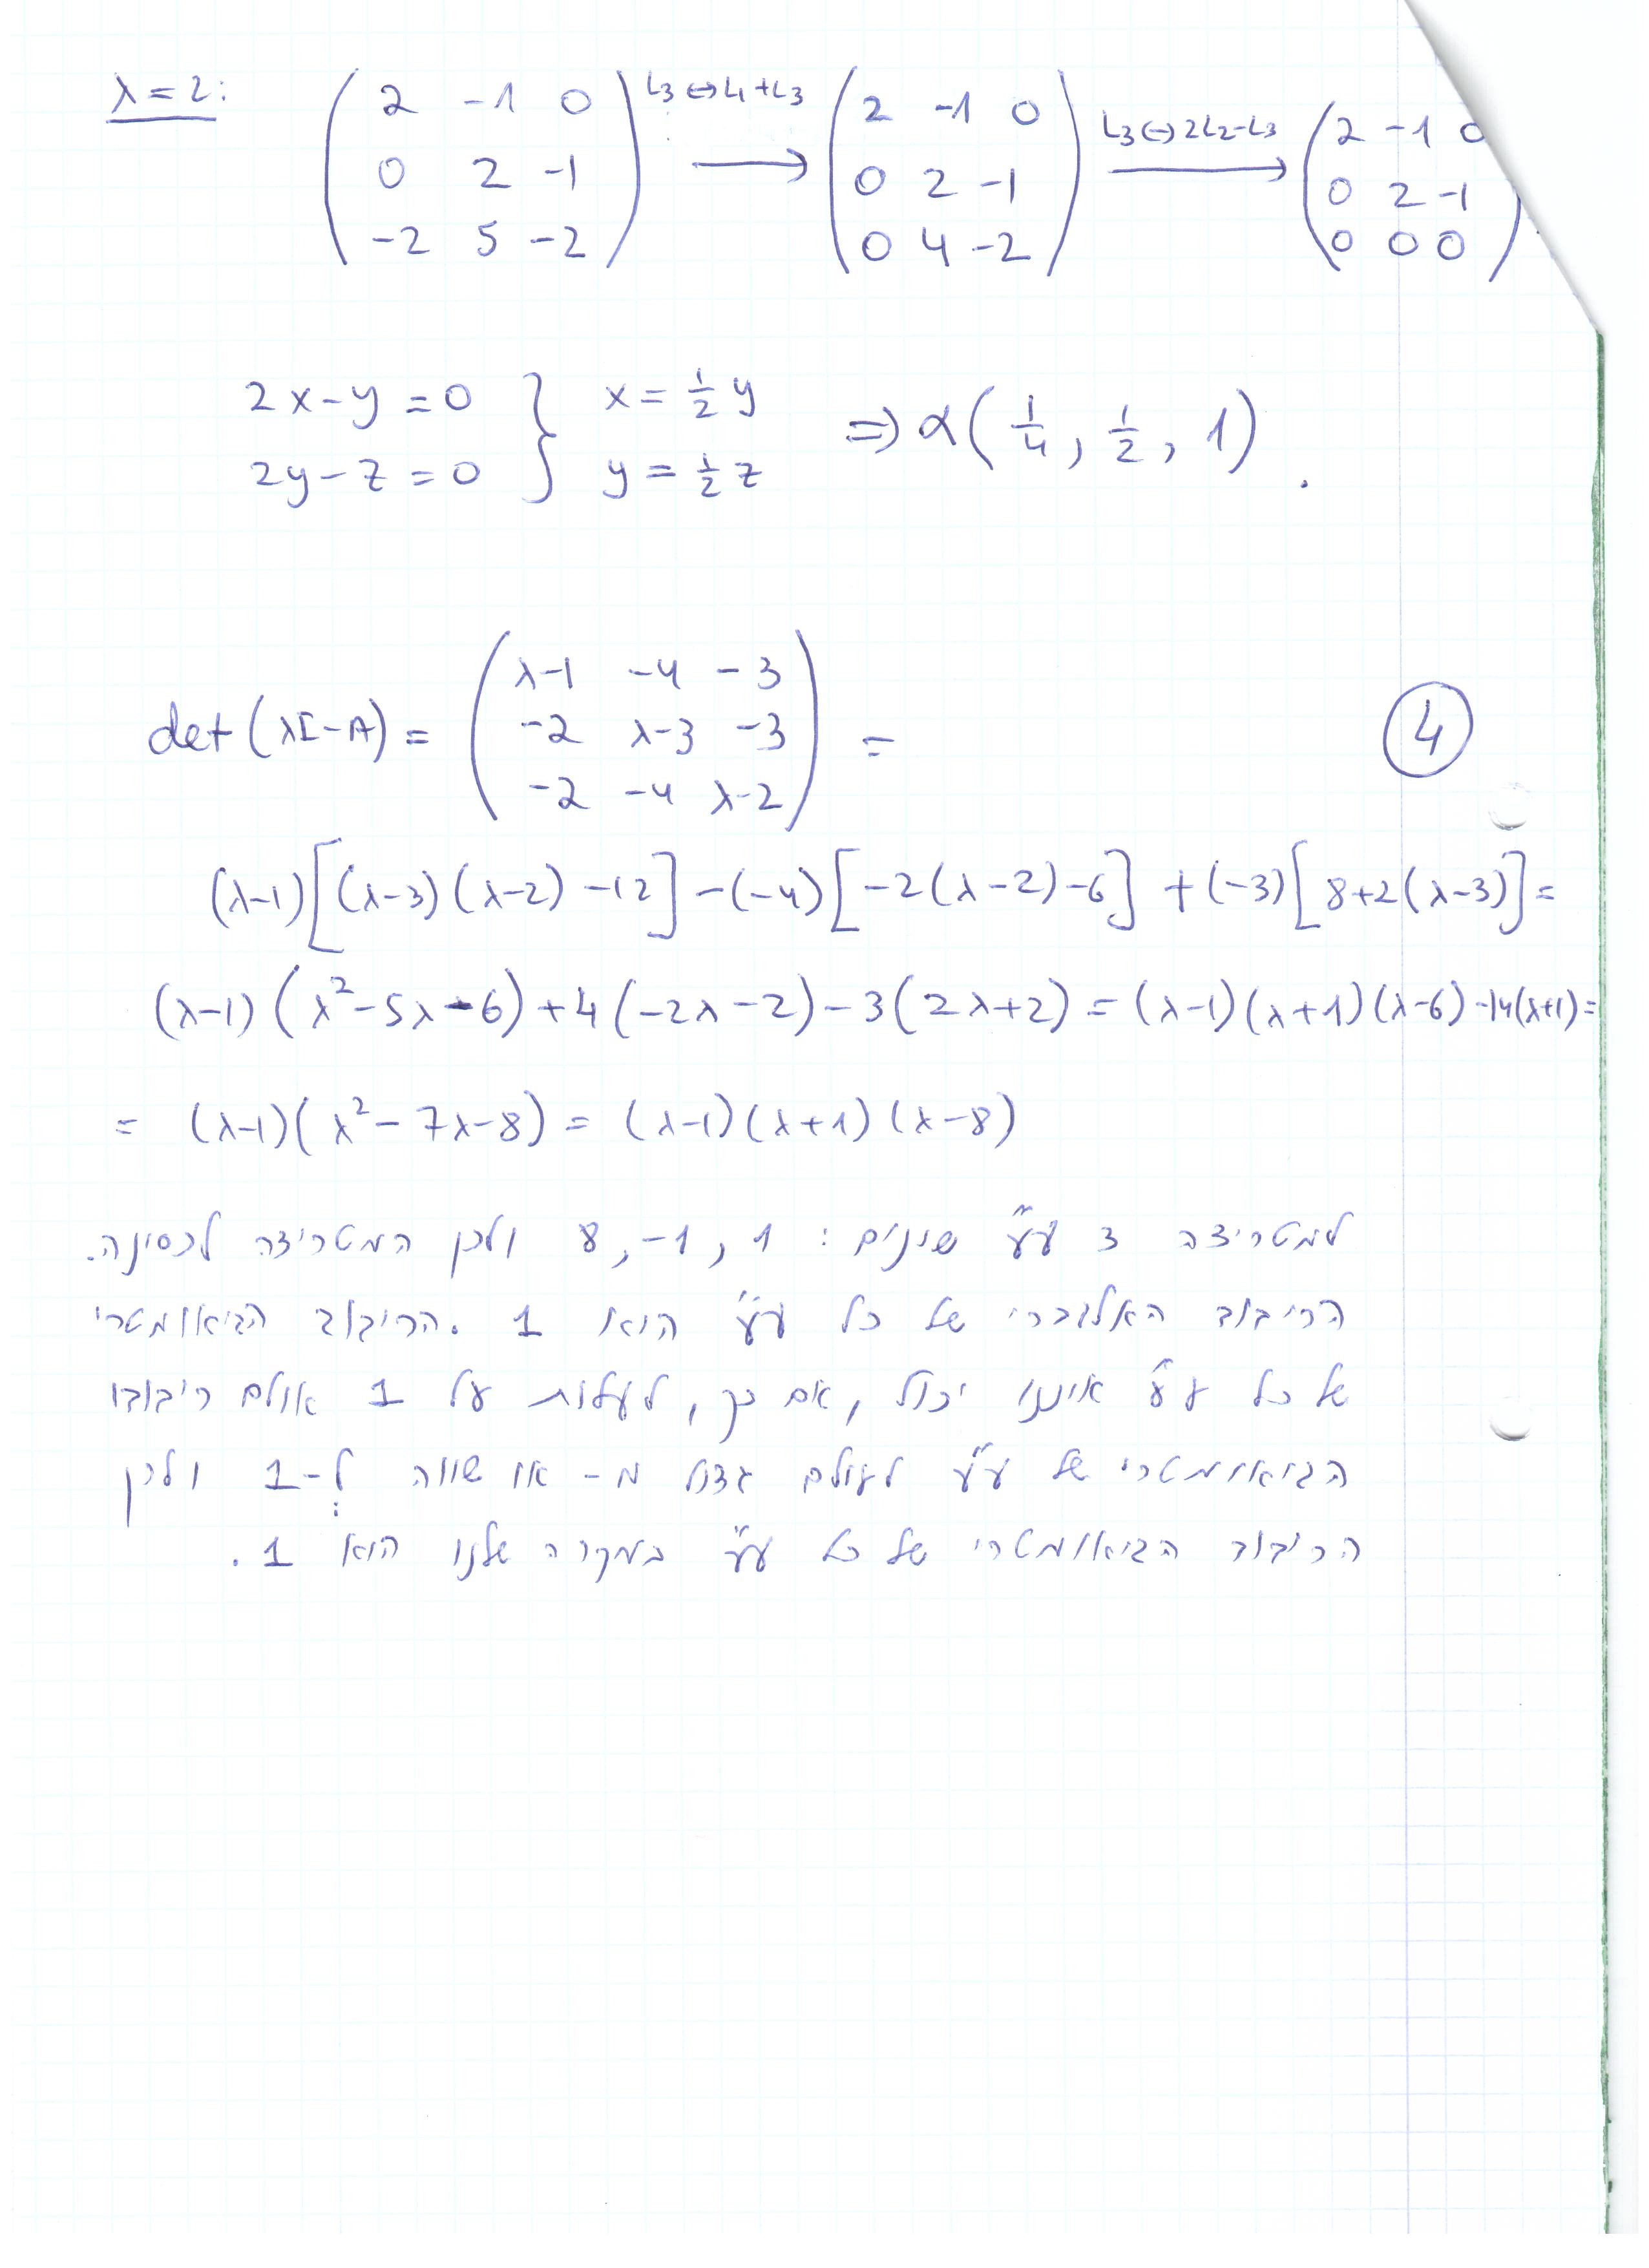 λ=2: (2 -1 0) L3↔L1+L3 (2 -1 0) L3↔2L2-L3 (2 -1 0)
(0 2 -1) → (0 2 -1) → (0 2 -1)
(-2 5 -2) (0 4 -2) (0 0 0)
2x-y=0 } x=½y ⇒ α(¼, ½, 1).
2y-z=0 } y=½z
det(λI-A) = (λ-1 -4 -3) = ④
(-2 λ-3 -3)
(-2 -4 λ-2)
(λ-1)[(λ-3)(λ-2)-12]-(-4)[-2(λ-2)-6]+(-3)[8+2(λ-3)]=
(λ-1)(λ²-5λ-6)+4(-2λ-2)-3(2λ+2)=(λ-1)(λ+1)(λ-6)-14(λ+1)=
= (λ-1)(λ²-7λ-8) = (λ-1)(λ+1)(λ-8)
למטריצה 3 ע"ע שונים: 1, -1, 8 ולכן המטריצה לכסינה.
הריבוב האלגברי של כל ע"ע הוא 1. הריבוב הגיאומטרי
של כל ע"ע איננו יכול, אם כך, לעלות על 1 אולם ריבובו
הגיאומטרי של ע"ע לעולם גדול מ- או שווה ל-1 ולכן
הריבוב הגיאומטרי של כל ע"ע במקרה שלנו הוא 1.